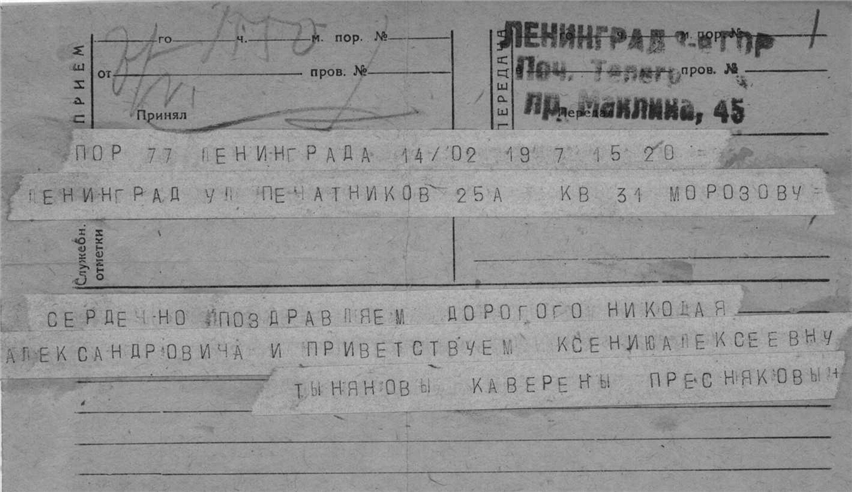 ПРИЕМ
го ч. м. пор. №
от пров. №
Принял
ПЕРЕДАЧА
го ч. м. пор. №
пров. №
ЛЕНИНГРАД
Поч. Телегр
пр. Маклина, 45
ПОР 77 ЛЕНИНГРАДА 14/02 19 7 15 20 =
ЛЕНИНГРАД УЛ ПЕЧАТНИКОВ 25А КВ 31 МОРОЗОВУ =
Служебн.
отметки
СЕРДЕЧНО ПОЗДРАВЛЯЕМ ДОРОГОГО НИКОЛАЯ
АЛЕКСАНДРОВИЧА И ПРИВЕТСТВУЕМ КСЕНИЮ АЛЕКСЕЕВНУ
ТЫНЯНОВЫ КАВЕРЕНЫ ПРЕСНЯКОВЫ+